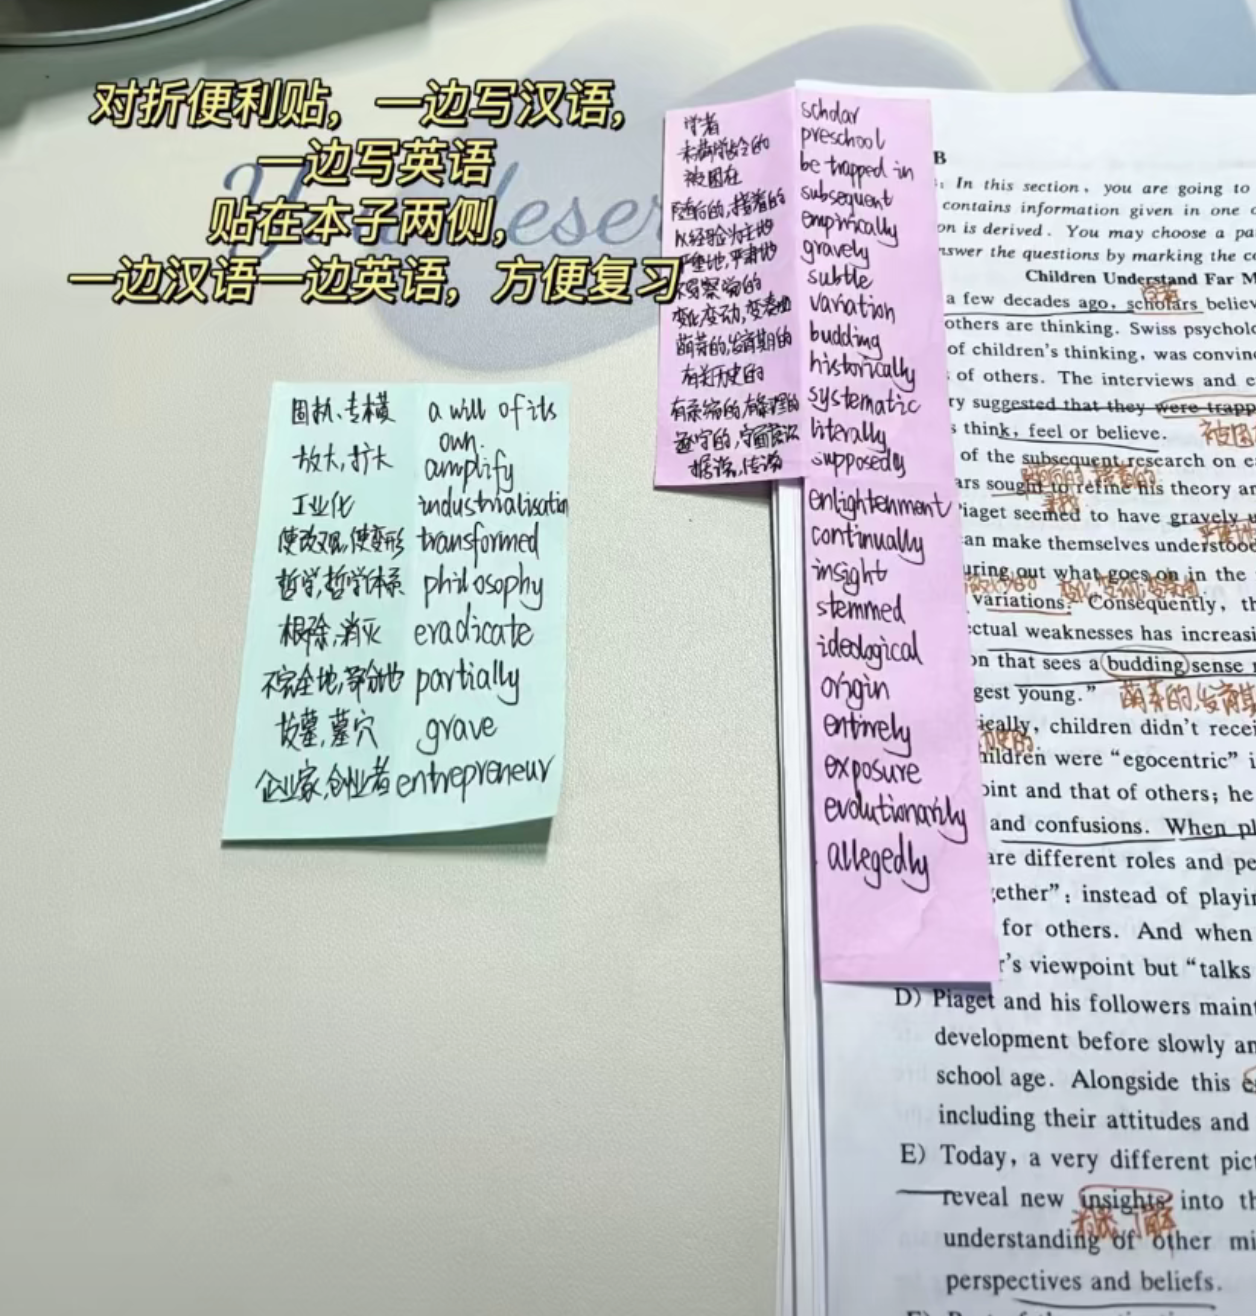 对折便利贴，一边写汉语，
一边写英语
贴在本子两侧，
一边汉语一边英语，方便复习
You deser
固执、专横 a will of its
own.
放大,扩大 amplify
工业化 industrialisation
使改观,使变形 transformed
哲学,哲学体系 philosophy
根除,消灭 eradicate
不完全地,部分地 partially
坟墓,墓穴 grave
企业家,创业者 entrepreneur
学者 scholar
未满学龄的 preschool
被困在 be trapped in
随后的,接着的 subsequent
以经验为主地 empirically
严重地,严肃地 gravely
不易察觉的 subtle
变化,变动,变奏曲 variation
萌芽的,发育期的 budding
有关历史的 historically
有系统的,有条理的 systematic
逐字的,字面意识 literally
据说,传说 supposedly
enlightenment
continually
insight
stemmed
ideological
origin
entirely
exposure
evolutionarily
allegedly
B
: In this section, you are going to
contains information given in one
on is derived. You may choose a
nswer the questions by marking the
Children Understand Far M
学者
a few decades ago, scholars believ
others are thinking. Swiss psycholo
of children's thinking, was convinc
of others. The interviews and
ry suggested that they were trapp
s think, feel or believe. 被困
of the subsequent research on
随后的 接着的
ars sought to refine his theory an
寻找
Piaget seemed to have gravely
严重地
an make themselves understood
uring out what goes on in the
变化,变动,变奏曲
variations. Consequently, th
ectual weaknesses has increasi
on that sees a budding sense
gest young.” 萌芽的,发育期
ically, children didn't recei
hildren were “egocentric” i
oint and that of others; he
and confusions. When pl
are different roles and pe
gether”: instead of playin
for others. And when
r's viewpoint but “talks
D) Piaget and his followers maint
development before slowly an
school age. Alongside this
including their attitudes and
E) Today, a very different pict
reveal new insights into th
了解
understanding of other mi
perspectives and beliefs.